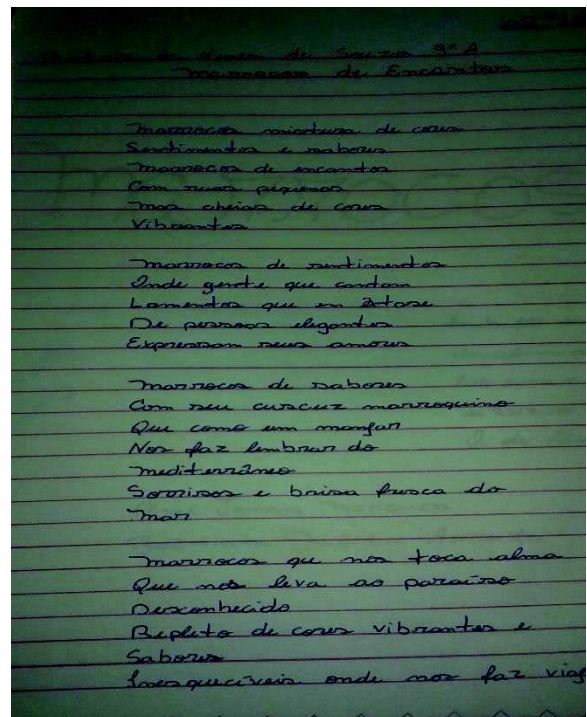 de Souza 9º A
Marrocos de Encantos
Marrocos mistura de cores
Sentimentos e sabores
Marrocos de encantos
Com ruas pequenas
Mas cheias de cores
Vibrantes
Marrocos de sentimentos
Onde gente que cantam
Lamentos que em
De pessoas elegantes
Expressam seus amores
Marrocos de sabores
Com seu cuscuz marroquino
Que como um manjar
Nos faz lembrar do
Mediterrâneo
Sorrisos e brisa fresca do
Mar
Marrocos qu nos toca alma
Que nos leva ao paraíso
Desconhecido
Repleto de cores vibrantes e
Sabores
Inesquecíveis onde nos faz